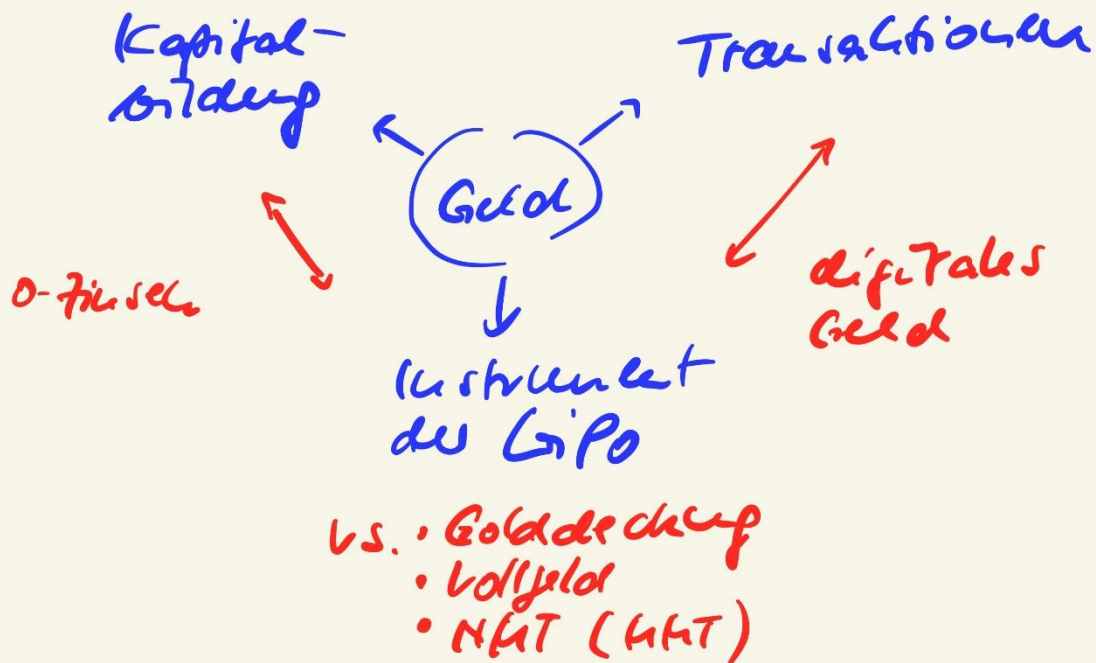 Kapital-
bildung
Transaktionen
Geld
0-Zinsen
digitales
Geld
Instrument
der WiPo
vs. • Golddeckung
• Vollgeld
• NMT (MMT)